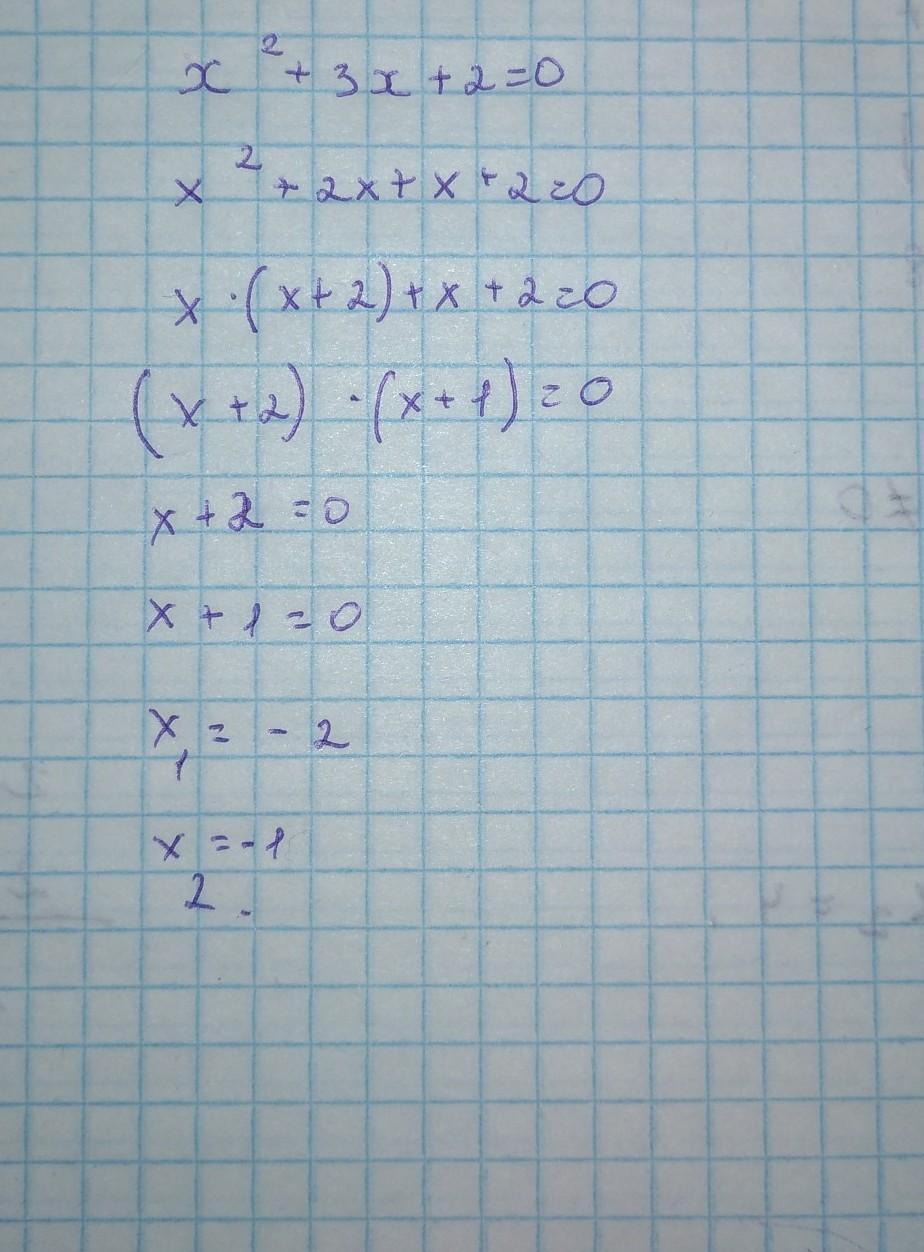 x² + 3x + 2 = 0
x² + 2x + x + 2 = 0
x · (x + 2) + x + 2 = 0
(x + 2) · (x + 1) = 0
x + 2 = 0
x + 1 = 0
x₁ = - 2
x₂ = -1.